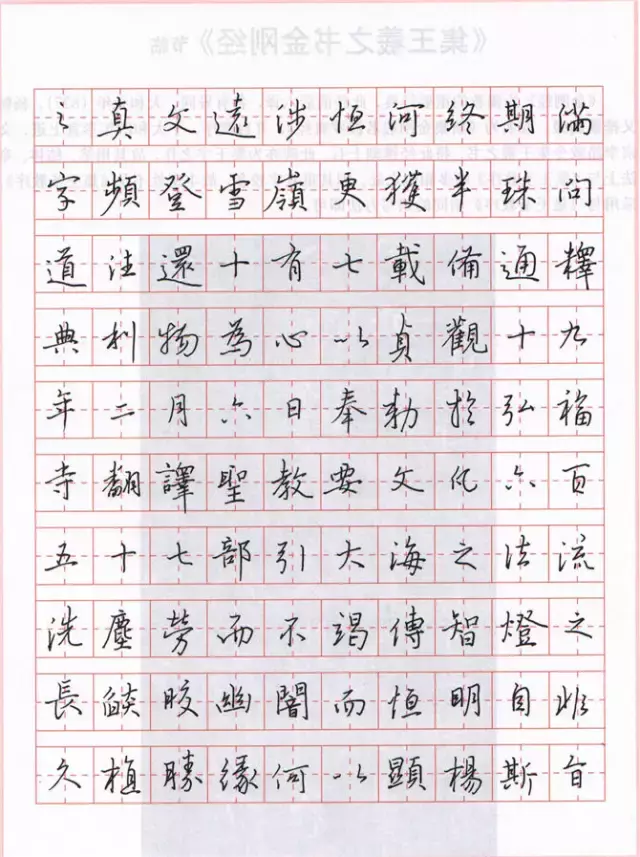 《集王羲之书金刚经》节临
之真文遠涉恒河終期滿
字頻登雪嶺更獲半珠問
道往還十有七載備通釋
典利物為心以貞觀十九
年二月六日奉勅於弘福
寺翻譯聖教要文凡六百
五十七部引大海之法流
洗塵勞而不竭傳智燈之
長燄皎幽闇而恒明自非
久植勝緣何以顯楊斯旨